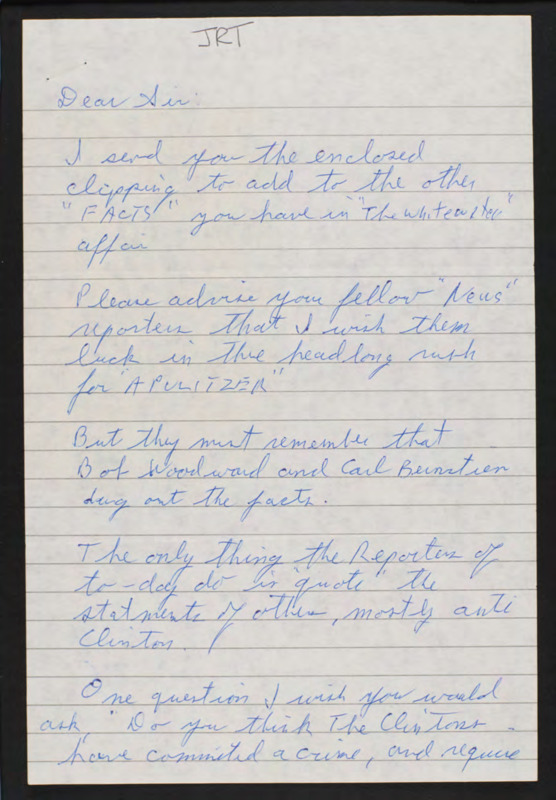 JRT
Dear Sir:
I send you the enclosed
clipping to add to the other
"FACTS" you have in "The whitewater"
affair
Please advise your fellow "News"
reporters that I wish them
luck in thie headlong rush
for "A PULITZER"
But they must remember that
Bob Woodward and Carl Bernstien
dug out the facts.
The only thing the Reporters of
to-day do is "quote" the
statments of others, mostly anti
Clinton.
One question I wish you would
ask, "Do you think The Clintons
have committed a crime, and require